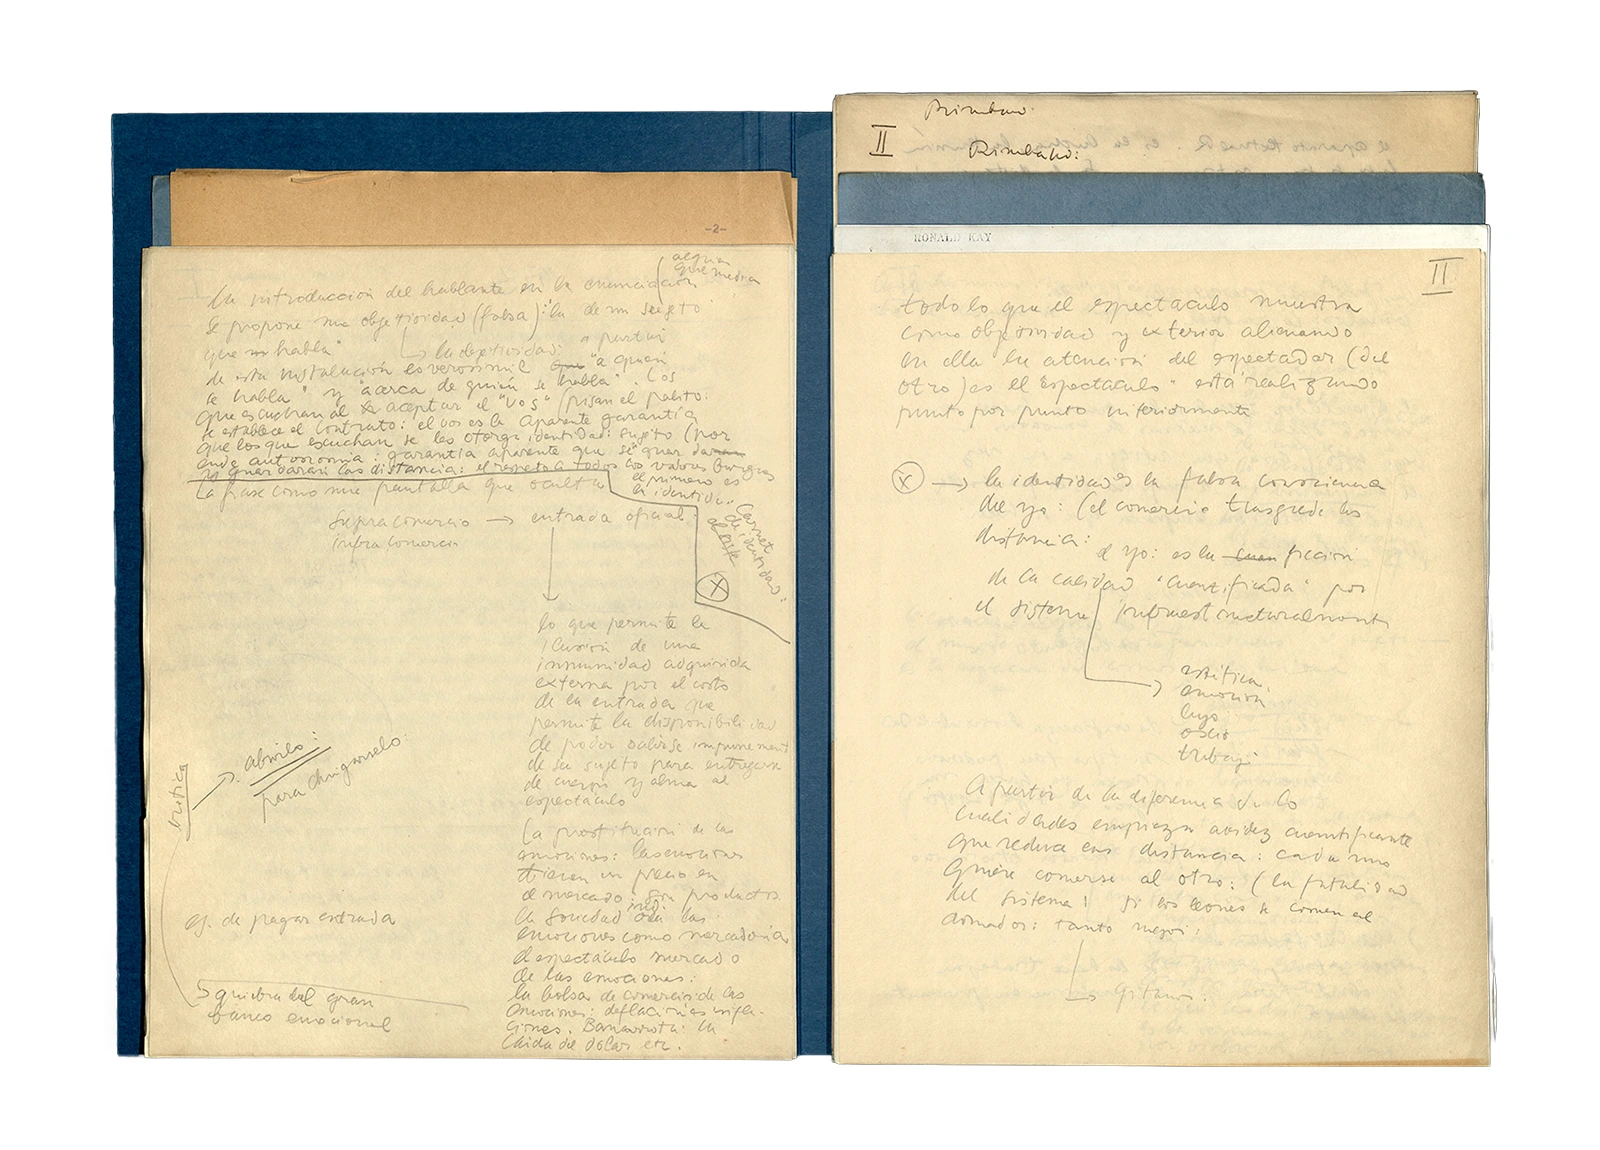 -2-
alguien
que media
la introducción del hablante en la enunciación
se propone una objetividad (falsa): "la de un sujeto
que habla"
la objetividad: a partir
de esta instalación es verosímil "a quien
se habla" y "acerca de quién se habla". Los
que escuchan al aceptar el "vos" (pisan el palito:
se establece el contrato: el vos es la aparente garantía
que los que escuchan se les otorga identidad: sujeto (por
ende autonomía: garantía aparente que se guardaran
se guardarán las distancias: el respeto a todos los valores burgueses
el primero es
la identidad..
La frase como una pantalla que oculta
Carnet
de identidad:
supracomercio → entrada oficial.
infracomercio
X
lo que permite la
ilusión de una
inmunidad adquirida
externa por el costo
de la entrada que
permite la disponibilidad
de poder salirse impunement
de su sujeto para entregarse
de cuerpo y alma al
espectáculo
crítica
→ abrirlo:
para chingárselo
La prostitución de las
emociones: las emociones
tienen un precio en
el mercado, son productos.
la sociedad de las
emociones como mercadería
el espectáculo mercado
de las emociones:
la bolsa de comercio de las
emociones: deflaciones infla-
ciones. Bancarrota: la
caída del dólar etc.
ej. de pagar entrada
quiebra del gran
banco emocional
Rimbaud
II
Rimbaud:
RONALD KAY
II
todo lo que el espectaculo muestra
como objetividad y exterior alienando
en ella la atención del espectador (del
otro) es el espectáculo" está realizando
punto por punto interiormente
X → la identidad es la falsa consciencia
del yo: (el comercio trasgrede las
distancia:
el yo: es la ficción
de la calidad "cuantificada" por
el sistema infraestructuralmente
estética.
emoción
lujo
oscio
trabajo
A partir de la diferencia de las
cualidades empieza avidez cuantificante
que reduce esa distancia: cada uno
quiere comerse al otro: (la fatalidad
del sistema! si los leones se comen al
domador: tanto mejor:
→ gitanos: